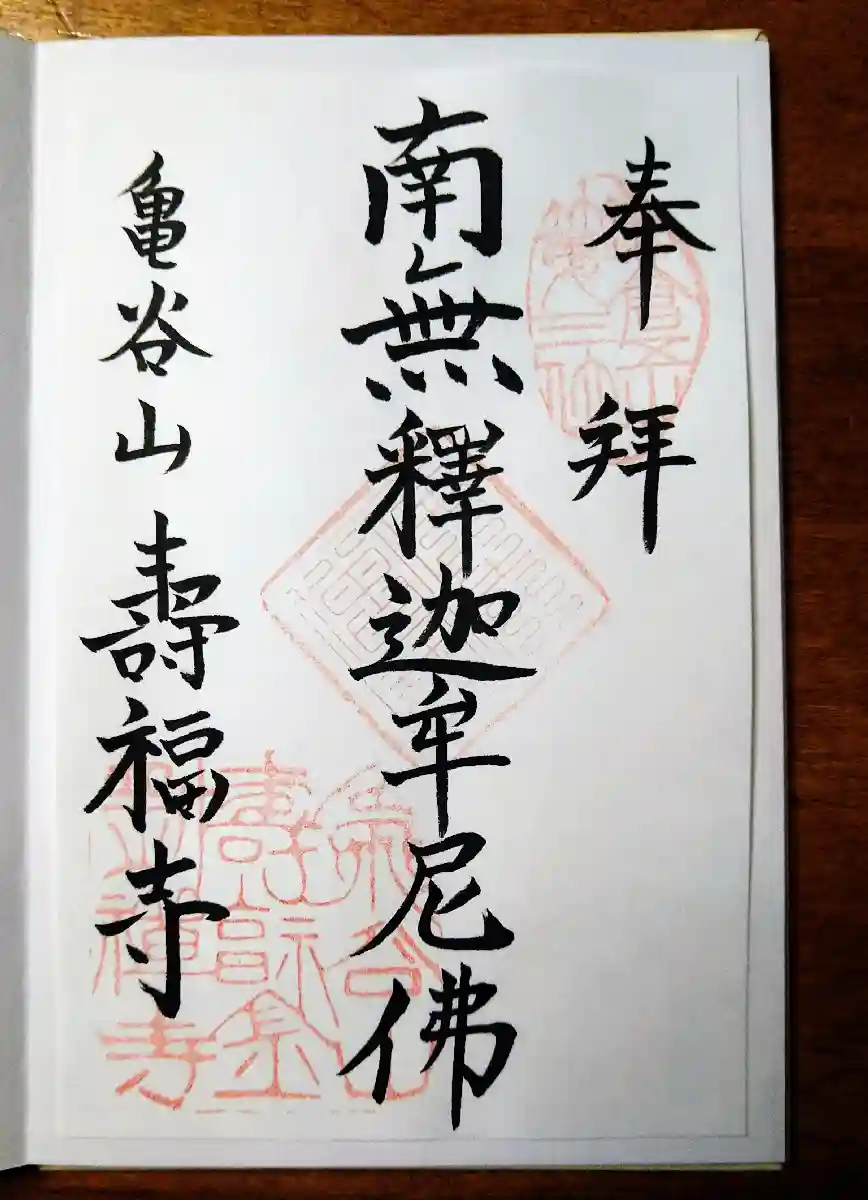 奉拝
南無釋迦牟尼佛
亀谷山壽福寺